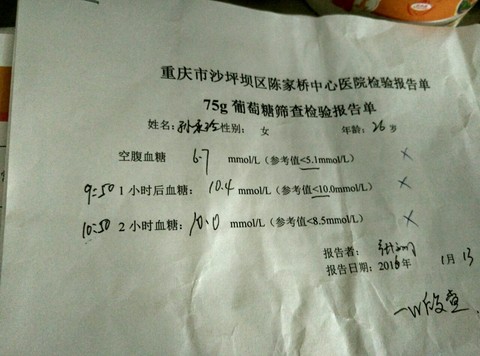 重庆市沙坪坝区陈家桥中心医院检验报告单
75g 葡萄糖筛查检验报告单
姓名: 性别: 女 年龄: 26 岁
空腹血糖 6.7 mmol/L(参考值<5.1mmol/L) ×
9:50 1 小时后血糖: 10.4 mmol/L(参考值<10.0mmol/L) ×
10:50 2 小时血糖: 10.0 mmol/L(参考值<8.5mmol/L) ×
报告者:
报告日期: 2016年 1月 13
一W后复查